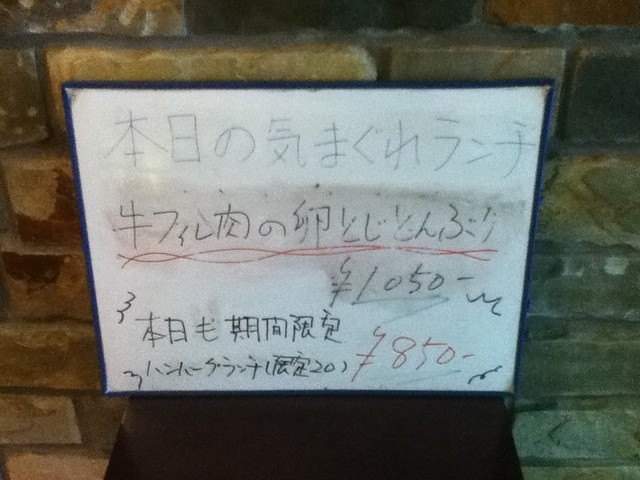 本日の気まぐれランチ
牛フィレ肉の卵とじとんぶり
¥1050-
本日も期間限定
ハンバーグランチ(限定20) ¥850-